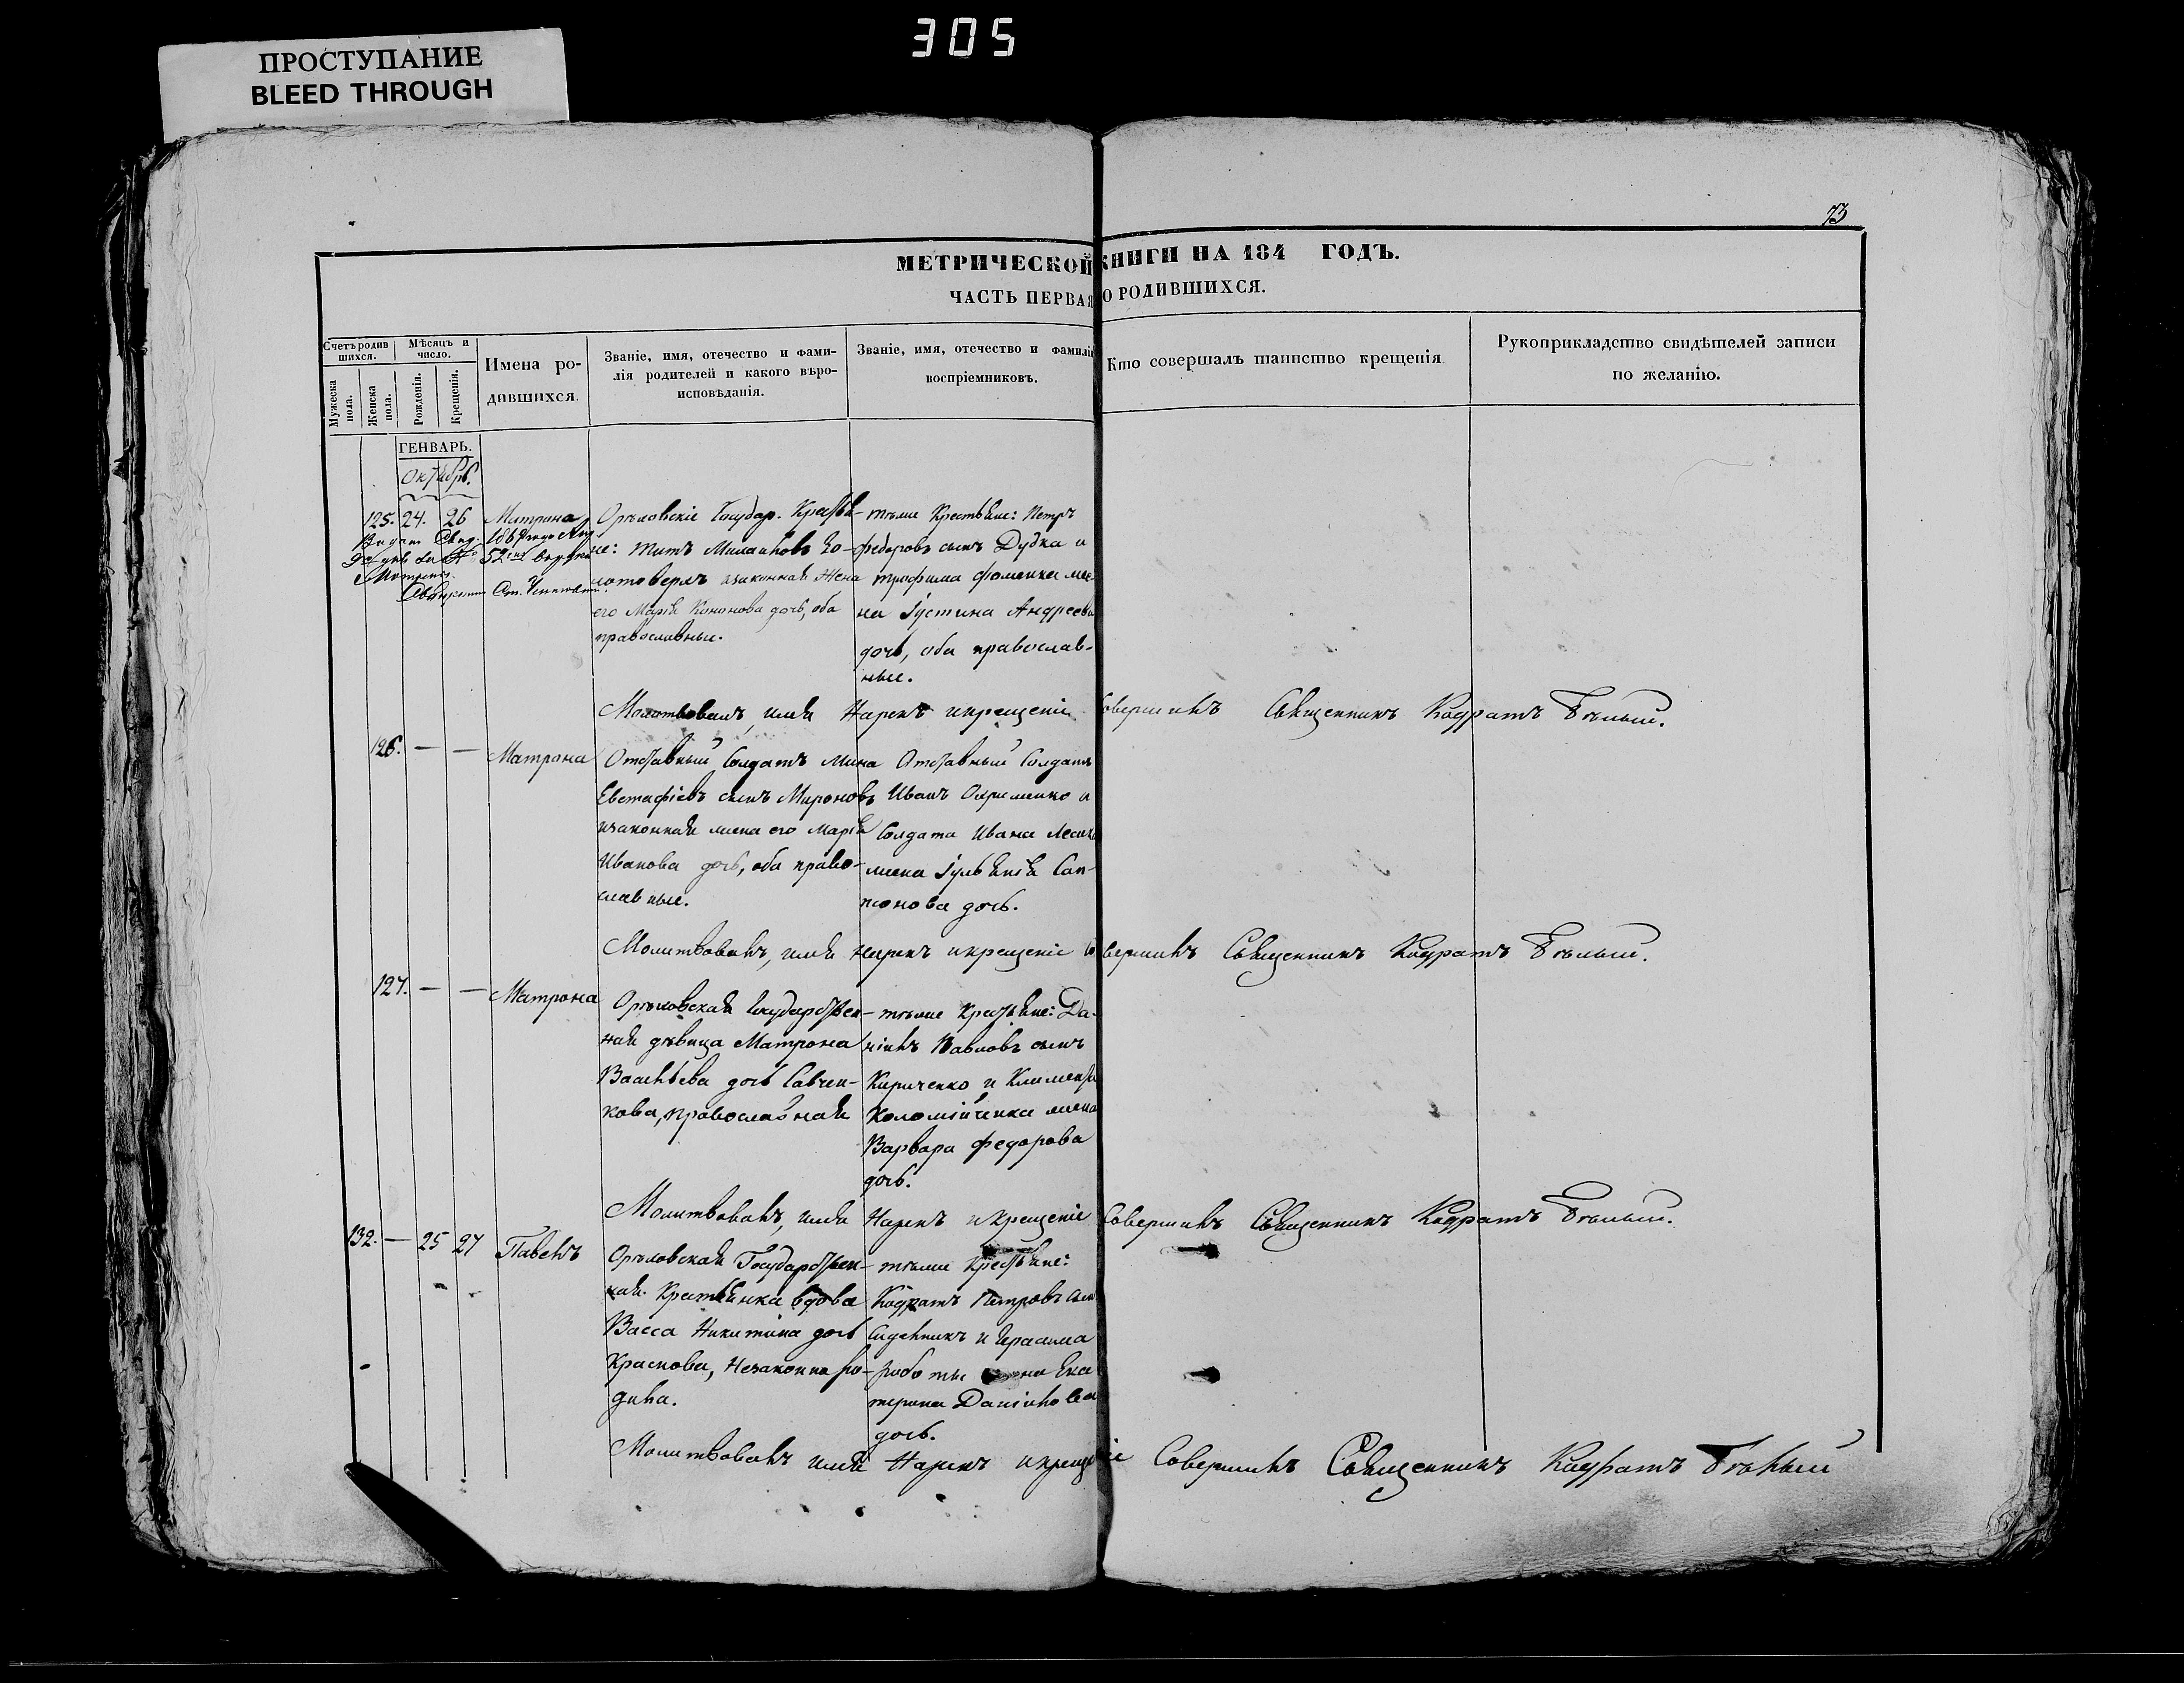 305
ПРОСТУПАНИЕ
BLEED THROUGH
73
МЕТРИЧЕСКОЙ КНИГИ НА 184 ГОДЪ.
ЧАСТЬ ПЕРВАЯ О РОДИВШИХСЯ.
Счетъ родив
шихся.
Мужеска
пола.
Женска
пола.
Мѣсяцъ и
число.
Рожденія.
Крещенія.
Имена ро-
дившихся.
Званіе, имя, отечество и фами-
лія родителей и какого вѣро-
исповѣданія.
Званіе, имя, отечество и фамилія
воспріемниковъ.
Кто совершалъ таинство крещенія
Рукоприкладство свидѣтелей записи
по желанію.
ГЕНВАРЬ.
Октябрь.
125. 24. 26 Матрона
Орѣловскіе Государ. Крестья-
не: Титъ
изаконная Жена
его Марія Кононова дочь, оба
православные.
тѣже Крестьяне: Петръ
Федоровъ сынъ Дудка и
Трофима Фоменка же-
на Іустина Андреева
дочь, оба православ-
ные.
Молитвовалъ, имя Нарекъ икрещеніе Совершилъ Священникъ Кодратъ Бѣлый.
126. — — Матрона
Отставный Солдатъ Мина
Евстафіевъ сынъ Мироновъ
изаконная жена его Марія
Иванова дочь, оба право-
славные.
Отставный Солдатъ
Иванъ Охрименко и
Солдата Ивана
жена Іульянія
дочь.
Молитвовалъ, имя нарекъ икрещеніе Совершилъ Священникъ Кодратъ Бѣлый.
127. — — Матрона
Орѣловская Государствен-
ная дѣвица Матрона
Васильева дочь Савчен-
кова, православная
тѣже Крестьяне: Да-
ніилъ Павловъ сынъ
Кириченко и Климентія
Коломійченка жена
Варвара Федорова
дочь.
Молитвовалъ, имя Нарекъ икрещеніе Совершилъ Священникъ Кодратъ Бѣлый.
132. — 25 27 Павелъ
Орѣловская Государствен-
ная Крестьянка вдова
Васса Никитина дочь
Краснова, Незаконно ро-
дила.
тѣже Крестьяне:
Кодратъ Петровъ сынъ
и Герасима
жена Ека
терина Даніилова
дочь.
Молитвовалъ имя Нарекъ икрещеніе Совершилъ Священникъ Кодратъ Бѣлый